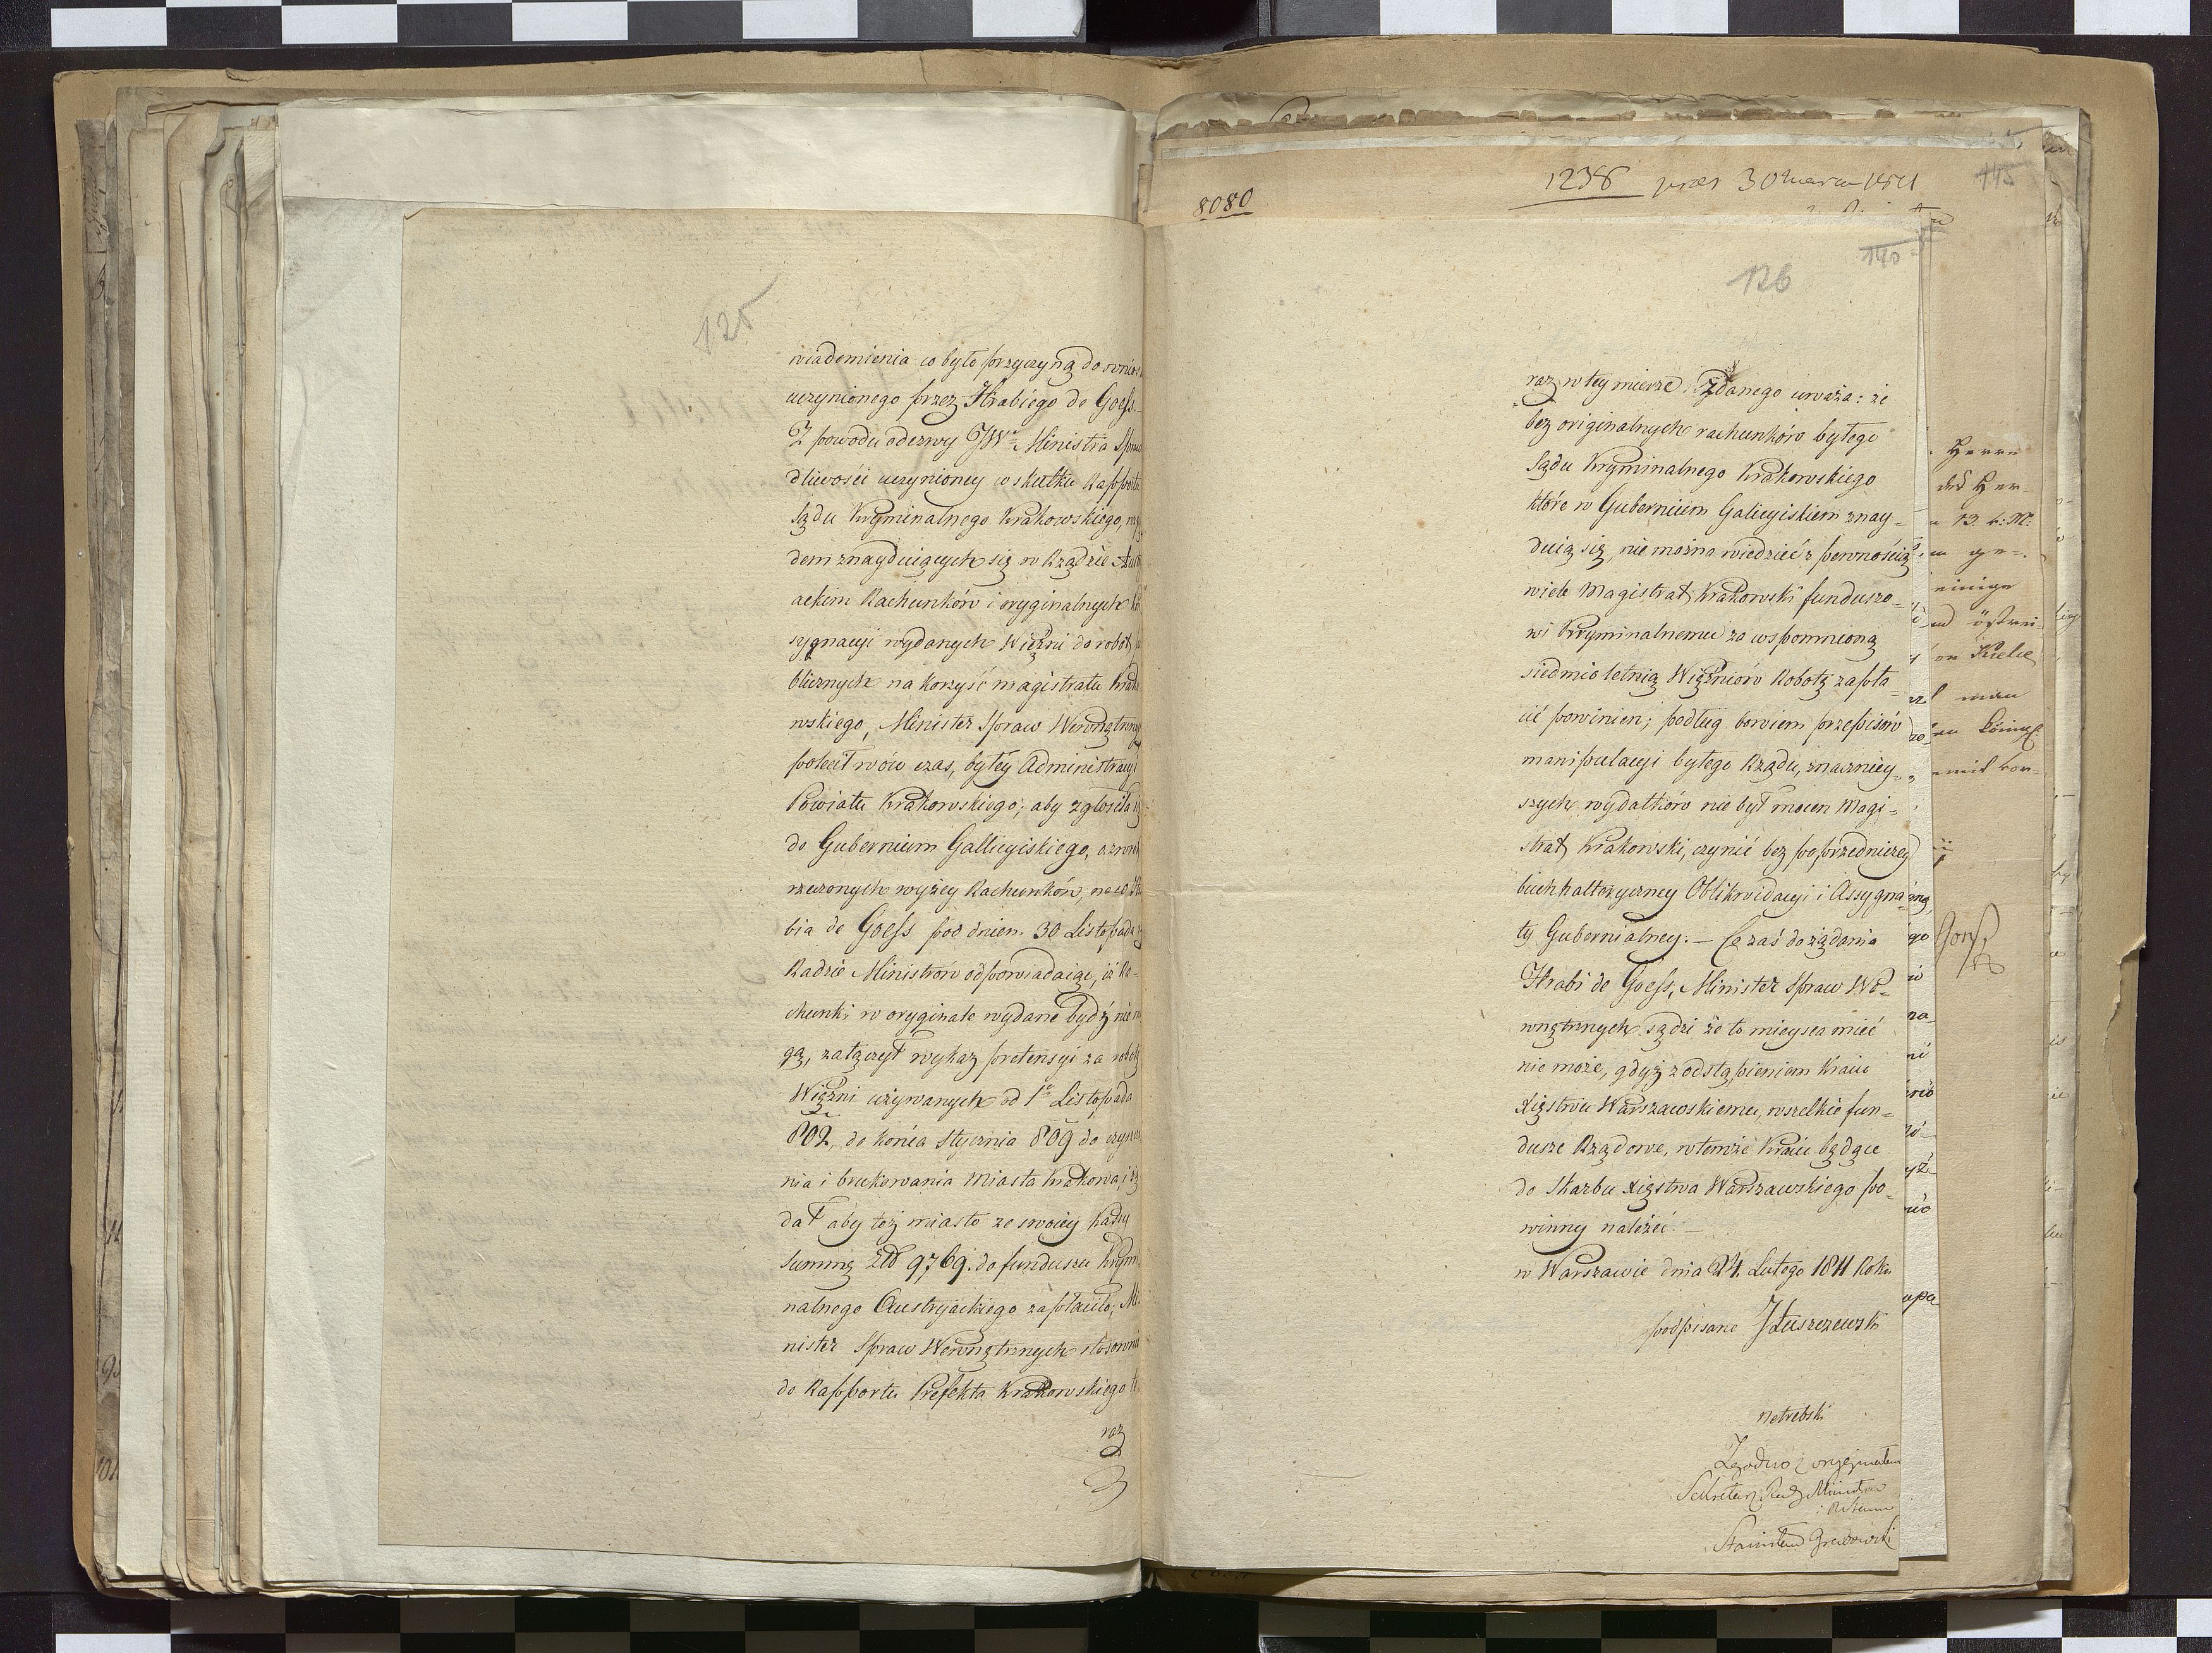 125
wiadomienia co było przyczyną do wnios
uczynionego przez Hrabiego de Goess.
Z powodu odezwy JWo Ministra Spra
dliwości uczynioney w skutku Rapportu
Sądu Kryminalnego Krakowskiego,
dem znayduiących się w Rządzie
ackim Rachunków i oryginalnych
sygnacyi wydanych Więźni do robot
blicznych na korzyść magistratu Krako
wskiego, Minister Spraw Wewnętrzny
polecił wów czas, byłéy Administracyi
Powiatu Krakowskiego; aby zgłosiła
do Gubernium Gallicyiskiego, o
rzeczonych wyżey Rachunków, na co
bia de Goess pod dniem 30 Listopada
Radzie Ministrów odpowiadaiąc, iż Ra-
chunki w oryginale wydane bydź nie
gą, załączył wykaz pretensyi za robotę
Więźni używanych od 1o Listopada
802, do końca Stycznia 809 do
nia i brukowania Miasta Krakowa, i
dał aby toż miasto ze swoiey Kassy
Summę Złt 9769. do funduszu Krym
nalnego Austryackiego zapłaciło; Mi
nister Spraw Wewnętrznych stosown
do Rapportu Prefekta Krakowskiego te
raz
8080
1238 prez 30 Marca 1811
115
140
126
raz w tey mierze zdanego uważa: że
bez originalnych rachunków byłego
Sądu Kryminalnego Krakowskiego
które w Gubernium Galicyiskiem znay-
duią się, nie można wiedzieć z pewnością
wiele Magistrat Krakowski funduszo-
wi Kryminalnemu za wspomnioną
siedmioletnią Więźniów Robotę zapła-
cić powinien; podług bowiem przepisów
manipulacyi byłego Rządu, znaczniey-
szych wydatków nie był mocen Magi-
strat Krakowski, czynić bez poprzedniczey
buchhalteryczney Oblikwidacyi i Assygna-
ty Gubernialney. — Co zaś do żądania
Hrabi de Goess, Minister Spraw We-
wnętrznych sądzi że to mieysca mieć
nie może, gdyż z odstąpieniem Kraiu
Xięstwu Warszawskiemu, wszelkie fun-
dusze Rządowe, w temże Kraiu będące
do Skarbu Xięstwa Warszawskiego po-
winny należeć. —
w Warszawie dnia 24. Lutego 1811 Roku
podpisano J Łuszczewski
Netrebski
Zgodno z oryginałem
Sekretarz Rady Ministrów
i Stanu
Stanisław Grabowski
Herrn
des Her-
13. k: M:
ge-
einige
östrei-
man
König